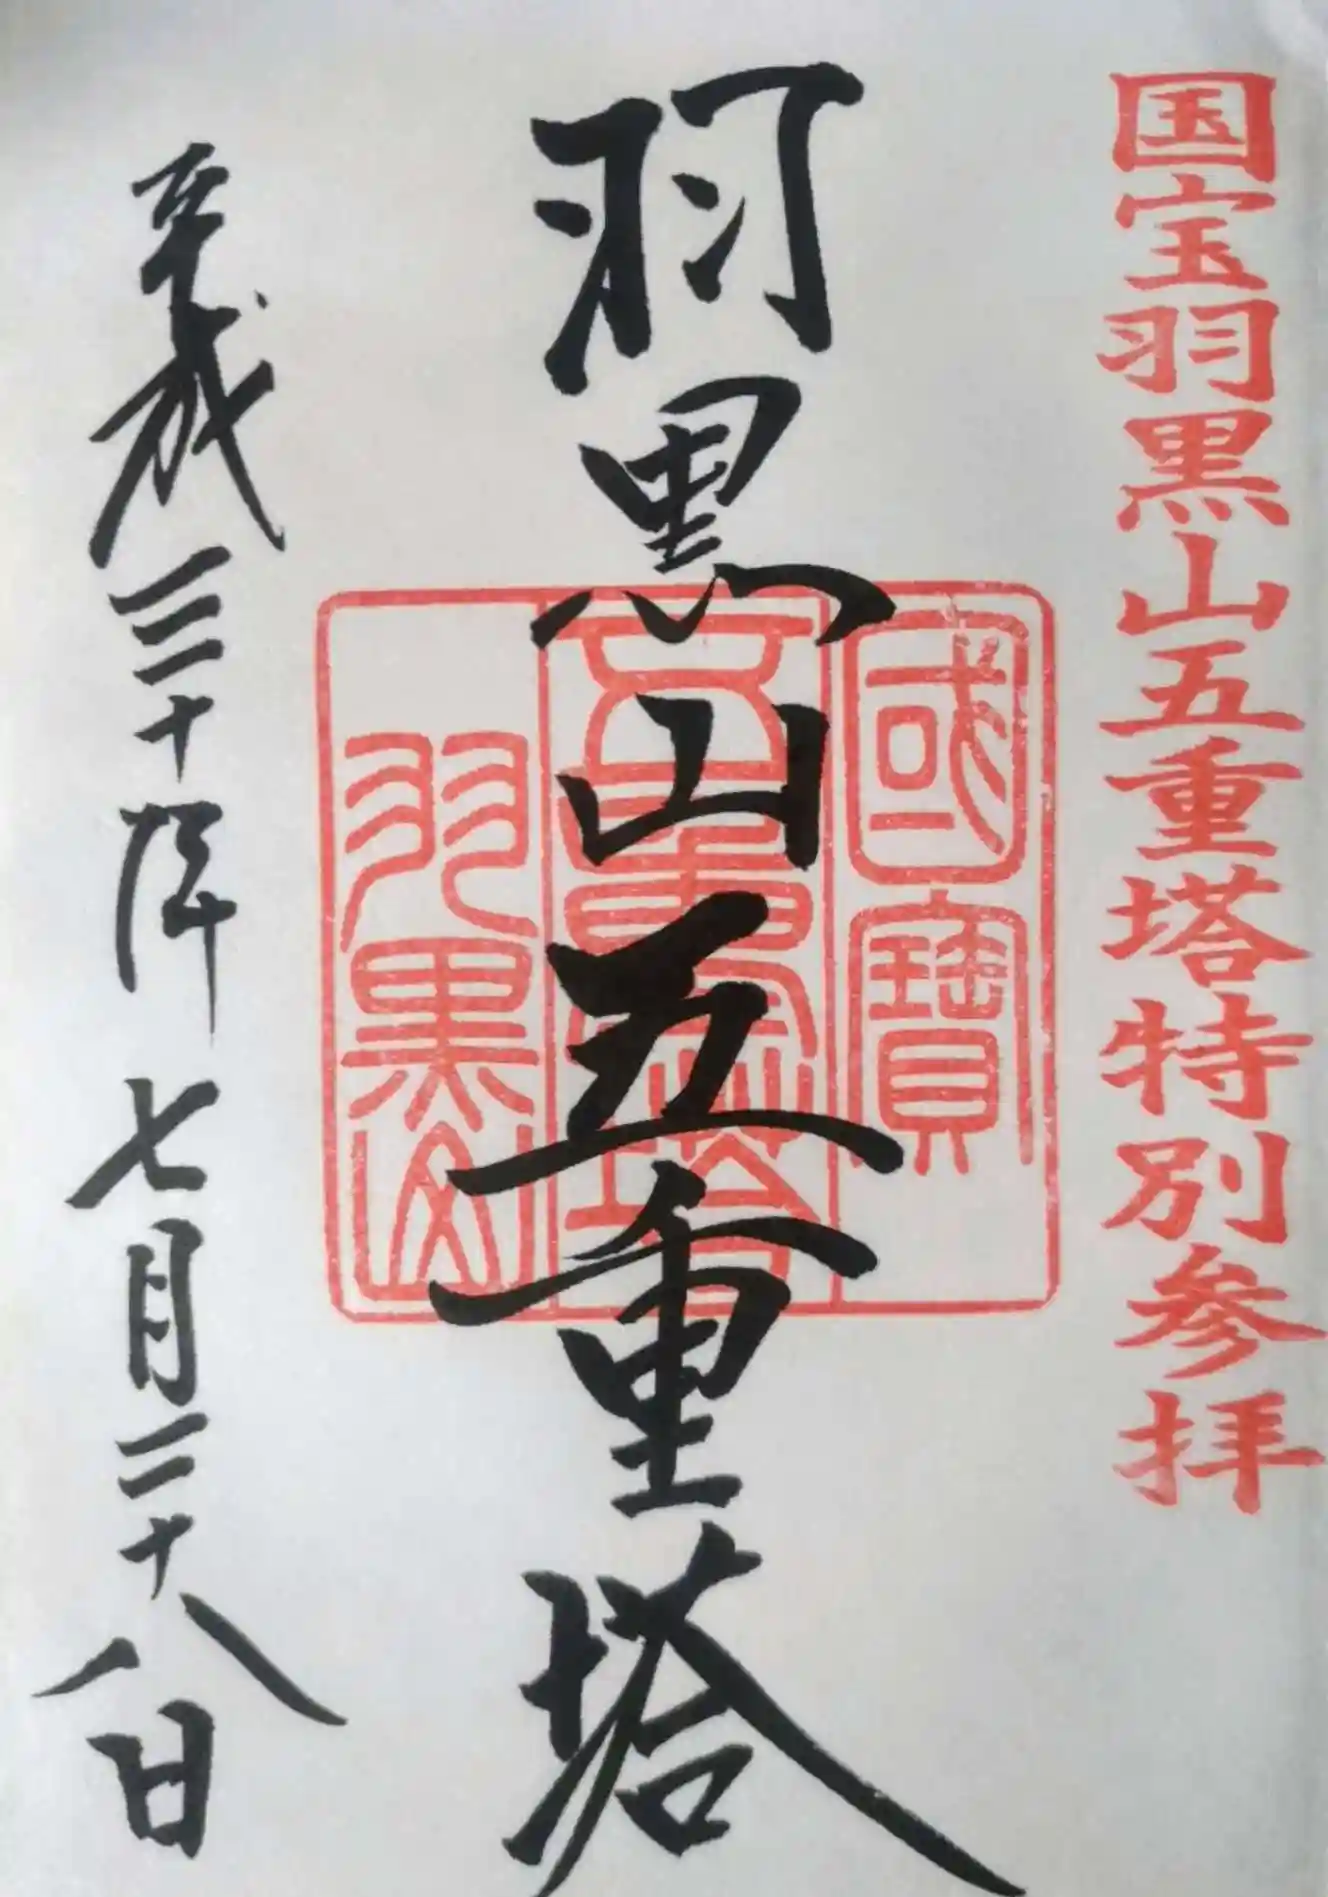 国宝羽黒山五重塔特別参拝
國寶
五重塔
羽黒山
羽黒山五重塔
平成三十年七月二十八日